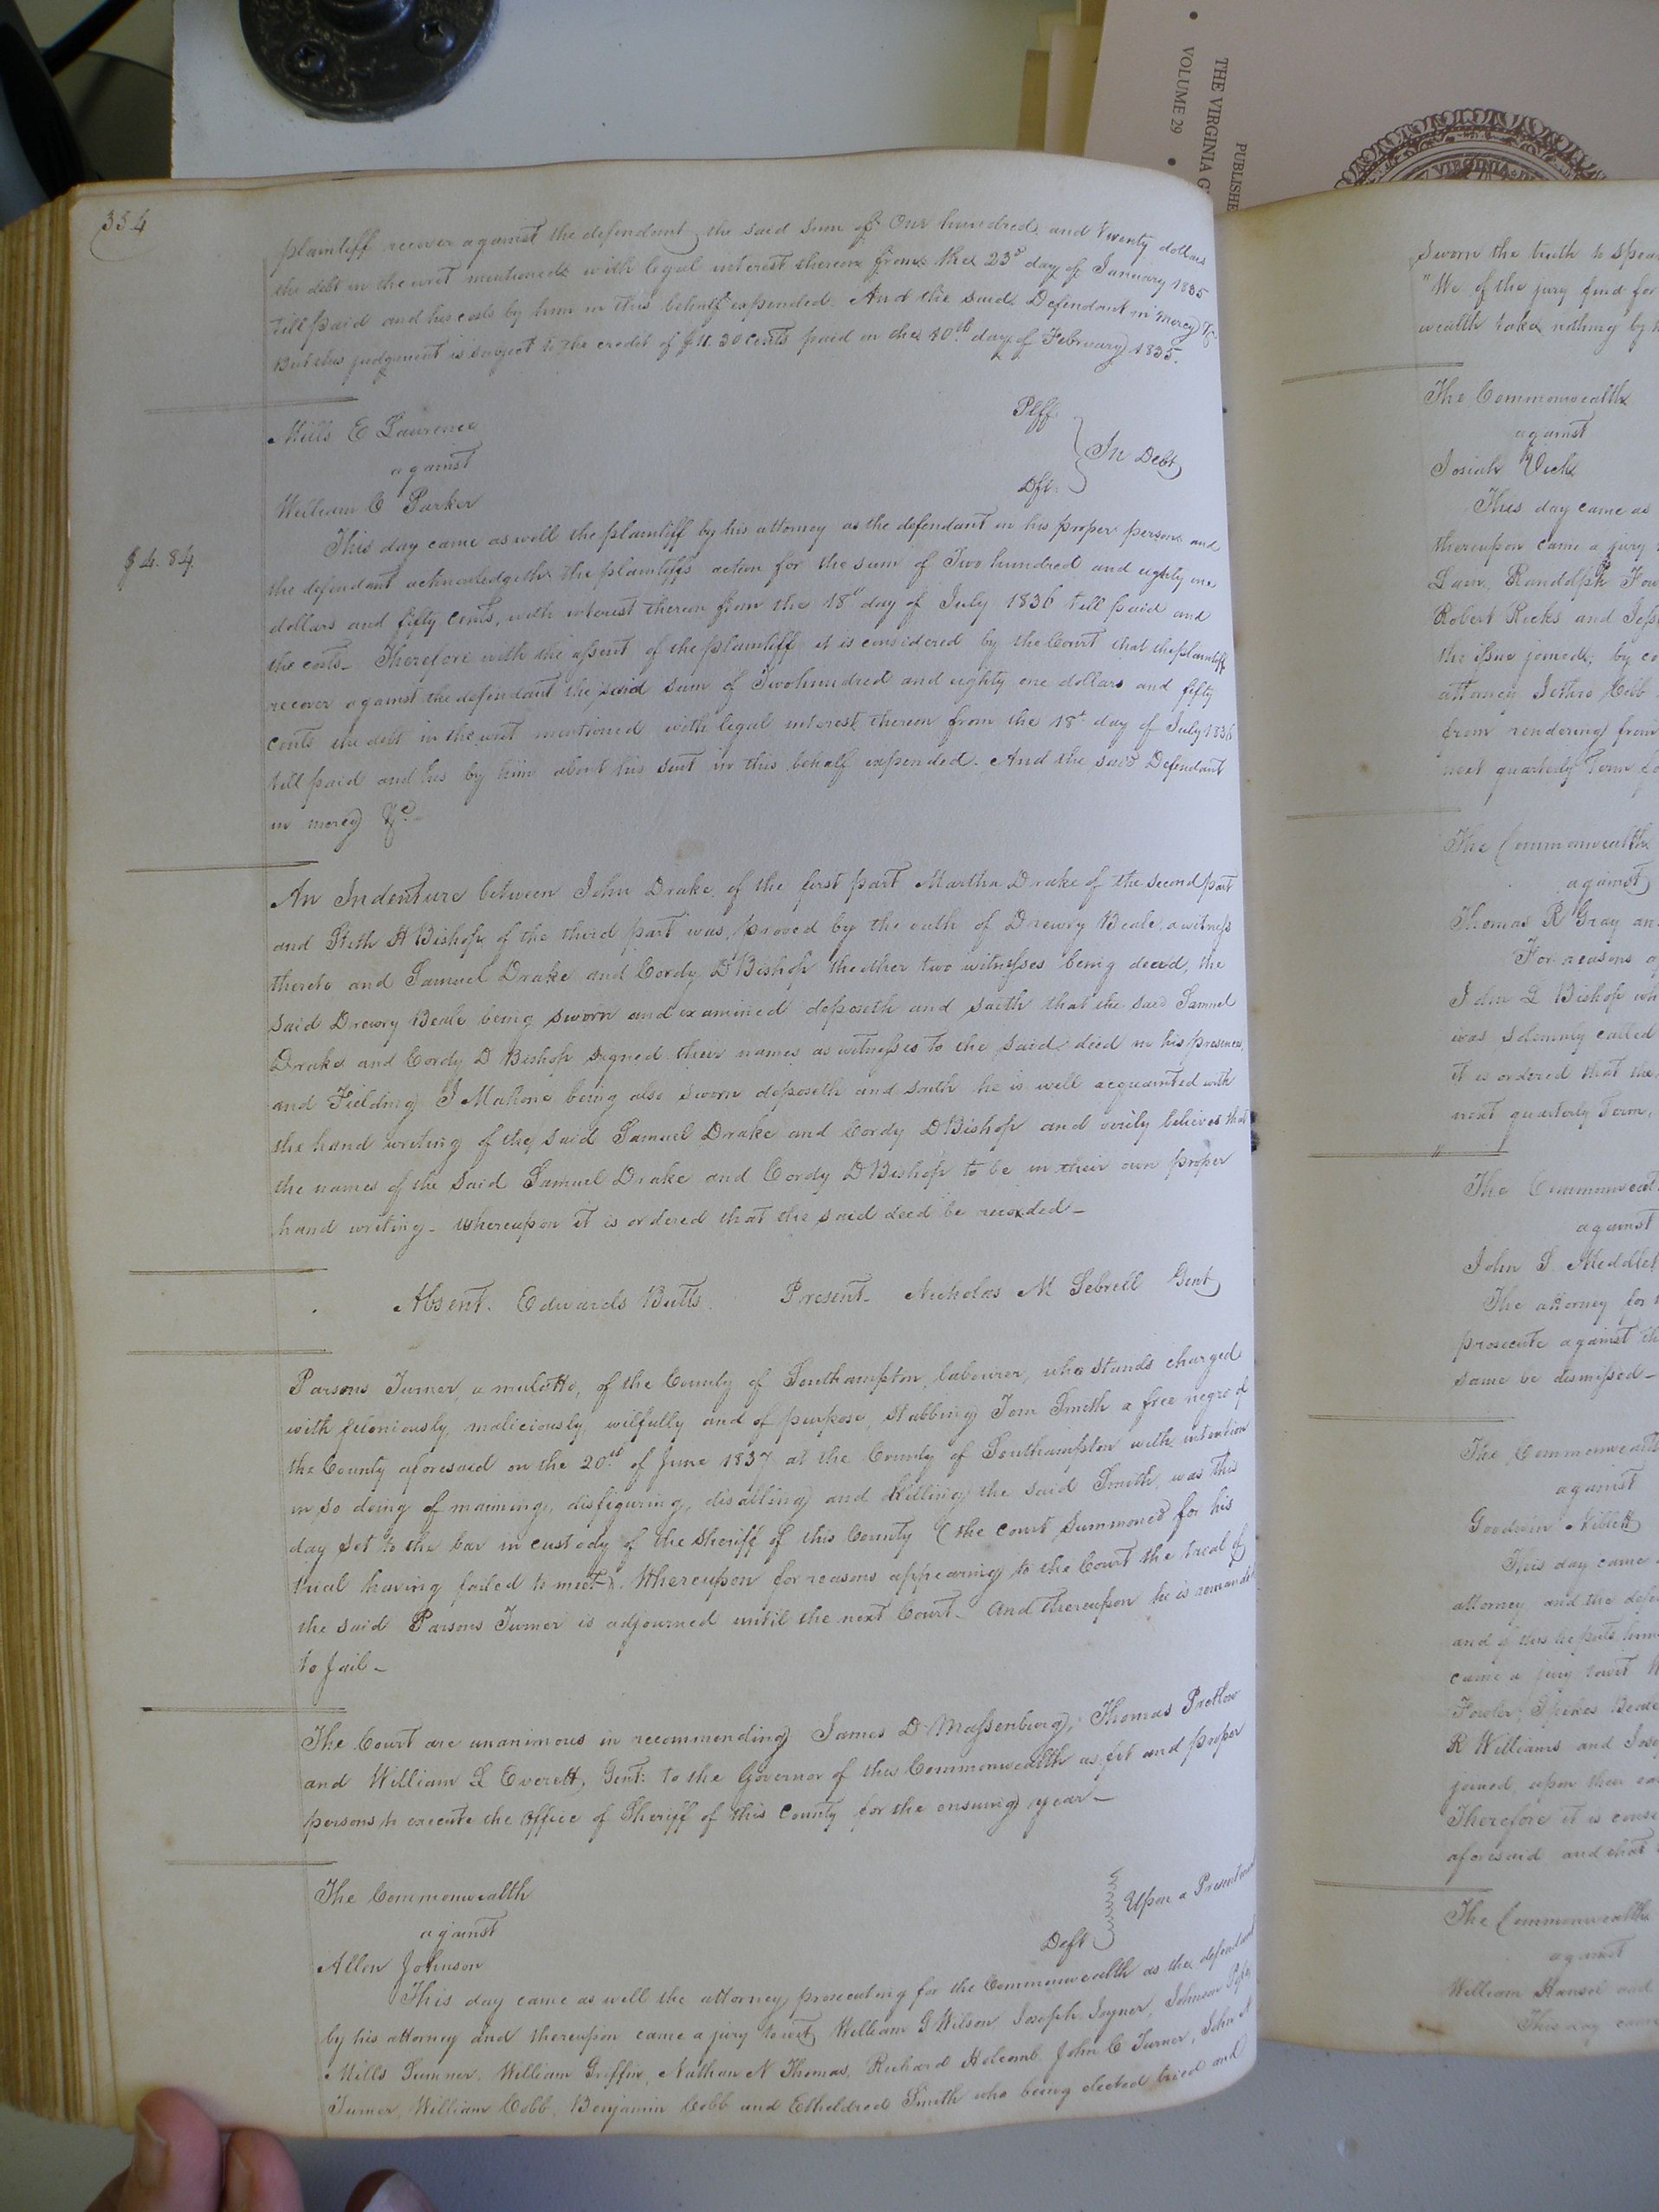 THE VIRGINIA G
VOLUME 29
PUBLISHE
VIRGINIA
334
plaintiff recover against the defendant the said sum of One hundred and twenty dollars
the debt in the writ mentioned with legal interest thereon from the 23d day of January 1835
till paid and his costs by him in this behalf expended. And the said Defendant in mercy &c
But this judgment is subject to the credit of $11.30 cents paid on the 10th day of February 1835.
Mills E Laurence Plff.
against In Debt
William C Parker Dft.
This day came as well the plaintiff by his attorney as the defendant in his proper person and
$4.84.
the defendant acknowledgeth the plaintiffs action for the sum of Two hundred and eighty one
dollars and fifty cents, with interest thereon from the 18th day of July 1836 till paid and
the costs_ Therefore with the assent of the plaintiff it is considered by the Court that the plaintiff
recover against the defendant the said sum of Two hundred and eighty one dollars and fifty
cents the debt in the writ mentioned with legal interest thereon from the 18th day of July 1836
till paid and his by him about his suit in this behalf expended. And the said Defendant
in mercy &c.
An Indenture between John Drake of the first part Martha Drake of the second part
and Sith H Bishop of the third part was proved by the oath of Drewry Beale a witness
thereto and Samuel Drake and Cordy D Bishop the other two witnesses being dead, the
said Drewry Beale being sworn and examined deposeth and saith that the said Samuel
Drake and Cordy D Bishop signed their names as witnesses to the said deed in his presence,
and Fielding J Mahone being also sworn deposeth and saith he is well acquainted with
the hand writing of the said Samuel Drake and Cordy D Bishop and verily believes that
the names of the said Samuel Drake and Cordy D Bishop to be in their own proper
hand writing_ whereupon it is ordered that the said deed be recorded_
Absent. Edwards Butts. Present. Nicholas M Sebrell Gent
Parsons Turner, a mulatto, of the County of Southampton, labourer, who stands charged
with feloniously, maliciously, wilfully and of purpose, stabbing Tom Smith a free negro of
the County aforesaid on the 20th of June 1837 at the County of Southampton with intention
in so doing of maiming, disfiguring, disabling and killing the said Smith, was this
day set to the bar in custody of the sheriff of this County (the court summoned for his
trial having failed to meet). Whereupon for reasons appearing to the Court the trial of
the said Parsons Turner is adjourned until the next Court_ And thereupon he is remanded
to Jail_
The Court are unanimous in recommending James D Massenburg, Thomas Pretlow
and William L Everett, Gent: to the Governor of this Commonwealth as fit and proper
persons to execute the office of Sheriff of this County for the ensuing year_
The Commonwealth
against Upon a Presentment
Allen Johnson Deft
This day came as well the attorney prosecuting for the Commonwealth as the defendant
by his attorney and thereupon came a jury towit, William G Wilson Joseph Joyner, Johnson
Mills Sumner, William Griffin, Nathan N Thomas, Richard Holcomb John C Turner, John
Turner, William Cobb, Benjamin Cobb and Etheldred Smith who being elected tried and
sworn the truth to spea
"We of the jury find for
wealth take nothing by
The Commonwealth
against
Josiah Vick
This day came as
thereupon came a jury
Lain, Randolph
Robert Ricks and
the issue joined, by
attorney Jethro Cobb
from rendering from
next quarterly Term
The Commonwealth
against
Thomas R Gray an
For reasons
John L Bishop wh
was solemnly called
it is ordered that the
next quarterly Term,
The Commonweal
against
John S
The attorney for
prosecute against th
same be dismissed_
The Commonwealth
against
Goodwin Niblett
This day came
attorney and the defe
and of this he puts him
came a jury towit
Fowler, Spikes
R Williams and
joined, upon their
Therefore it is cons
aforesaid and that
The Commonwealth
against
William
This day came